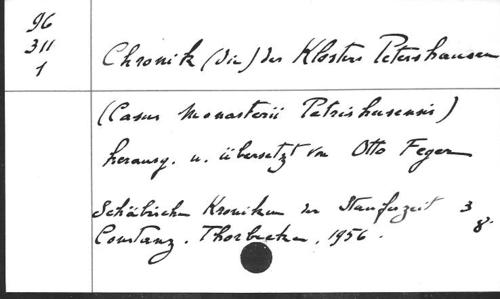 96
311
1
Chronik (die) des Klosters Petershausen
(Casus Monasterii Petrishusensis)
herausg. u. übersetzt von Otto Feger
Schäbischen Kroniken der Stauferzeit 3
8.
Constanz. Thorbecke, 1956.